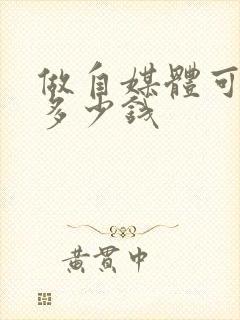 做自媒體可
多少錢
黃貫中